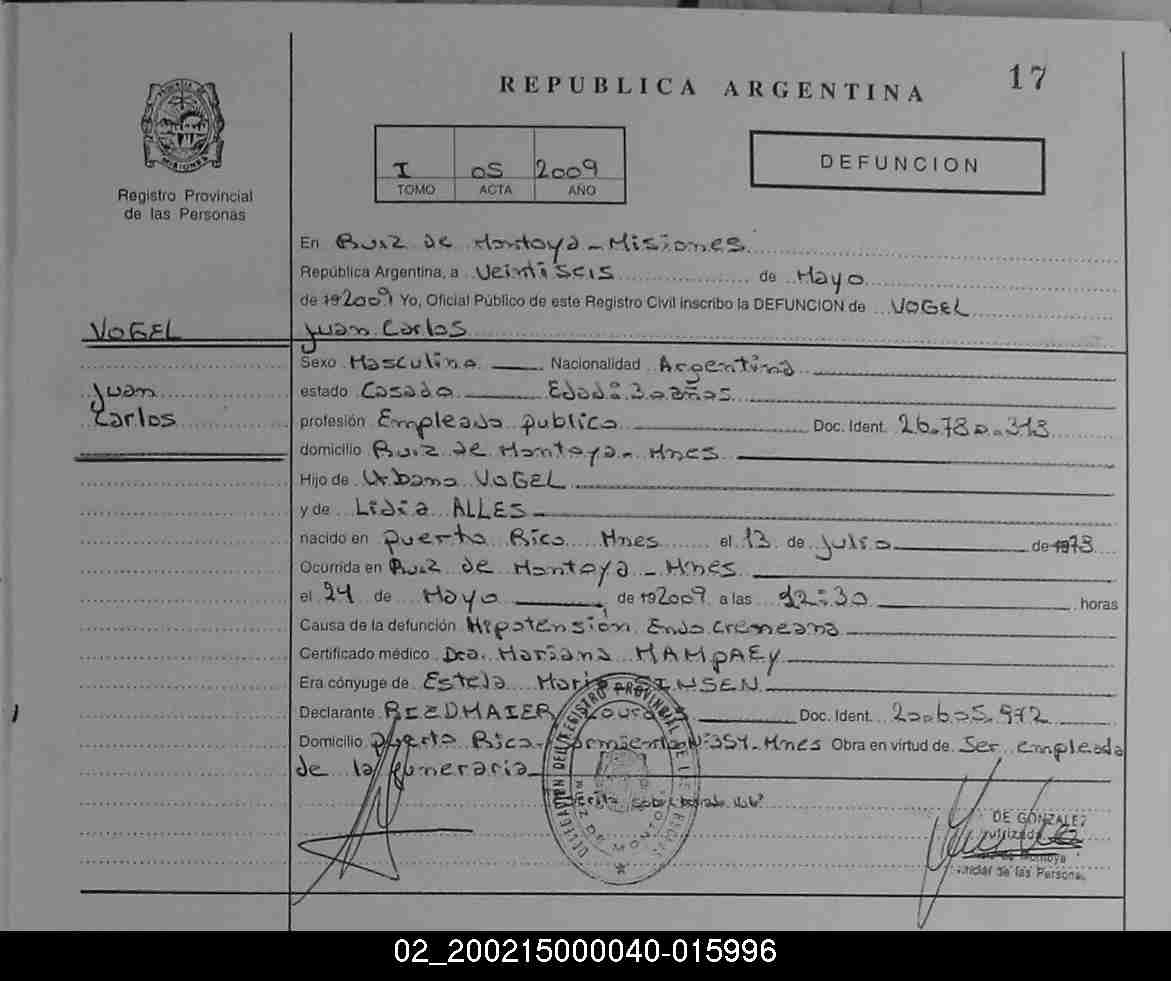 REPUBLICA ARGENTINA
17
PROVINCIA DE MISIONES
Registro Provincial
de las Personas
I 05 2009
TOMO ACTA AÑO
DEFUNCION
En Ruiz de Montoya - Misiones
República Argentina, a Veintiseis de Mayo
de 192009 Yo, Oficial Público de este Registro Civil inscribo la DEFUNCION de VOGEL
VOGEL
Juan Carlos
Sexo Masculino Nacionalidad Argentina
Juan
estado Casado Edad: 30 años
Carlos
profesión Empleado publico Doc. Ident. 26.780.313
domicilio Ruiz de Montoya - Mnes
Hijo de Urbano VOGEL
y de Lidia ALLES
nacido en Puerto Rico Mnes el 13 de Julio de 1978
Ocurrida en Ruiz de Montoya - Mnes
el 24 de Mayo de 192009 a las 12:30 horas
Causa de la defunción Hipotensión Endocreneana
Certificado médico Dra. Mariana MAMPAEY
Era cónyuge de Estela Maris SINSEN
Declarante RIEDMAIER Laura Doc. Ident. 20.605.972
Domicilio Puerto Rico - N° 354 - Mnes Obra en virtud de Ser empleada
de la funeraria
DELEGACION DEL REGISTRO PROVINCIAL DE LAS PERSONAS
RUIZ DE MONTOYA
DE GONZALEZ
de Montoya
de las Personas
02_200215000040-015996